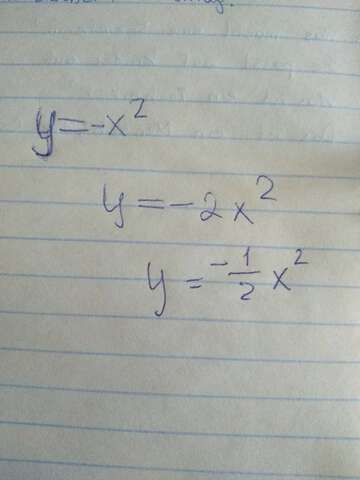 y=-x²
y=-2x²
y=-\frac{1}{2}x²